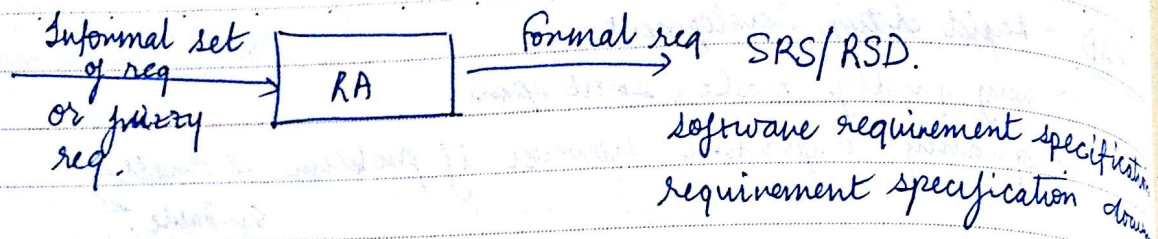 Informal set
of req
or fuzzy
req.
RA
formal req
SRS/RSD.
software requirement specification
requirement specification